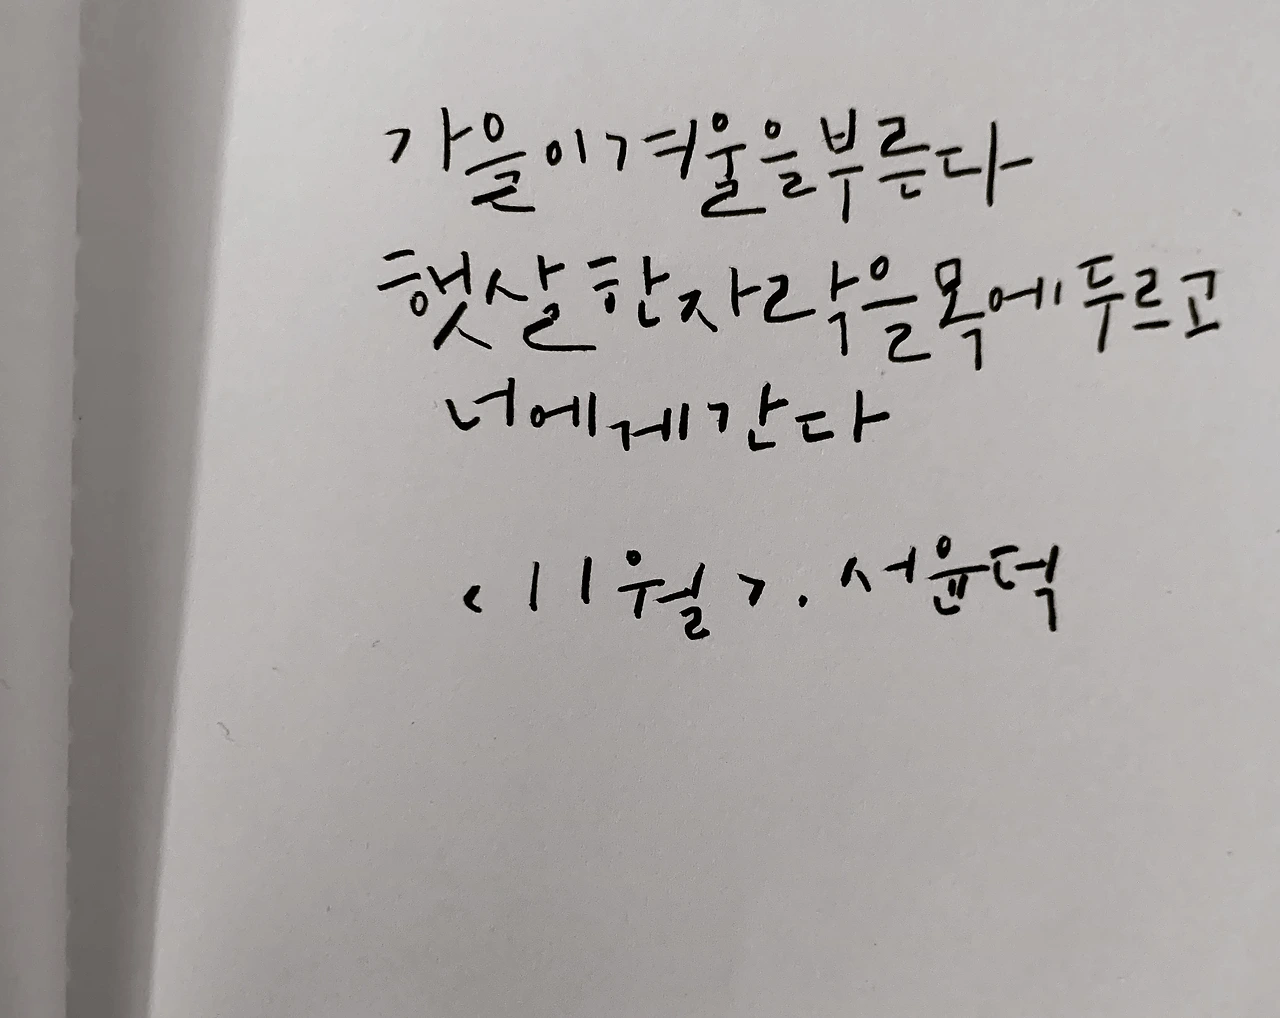 가을이 겨울을 부른다
햇살 한 자락을 목에 두르고
너에게 간다
<11월>. 서윤덕